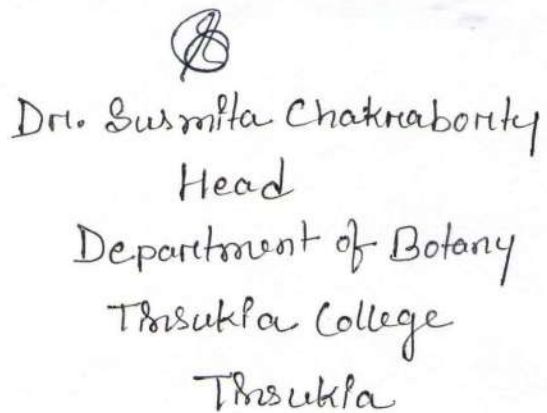 Dr. Susmita Chakraborty
Head
Department of Botany
Tinsukia College
Tinsukia